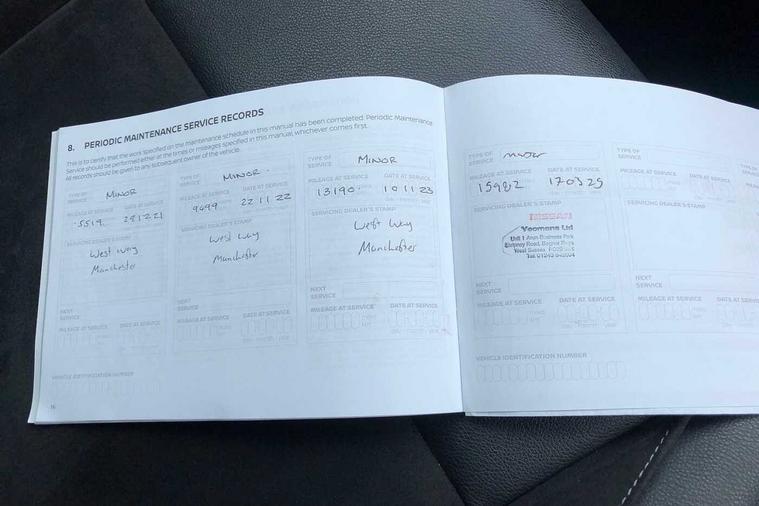 8. PERIODIC MAINTENANCE SERVICE RECORDS
This is to certify that the work specified on the maintenance schedule in this manual has been completed. Periodic Maintenance
Service should be performed either at the times or mileages specified in this manual, whichever comes first.
All records should be given to any subsequent owner of the vehicle.
TYPE OF SERVICE MINOR
MILEAGE AT SERVICE DATE AT SERVICE
5519 281221
SERVICING DEALER'S STAMP
West Way
Manchester
NEXT SERVICE
MILEAGE AT SERVICE DATE AT SERVICE
VEHICLE IDENTIFICATION NUMBER
16
TYPE OF SERVICE MINOR
MILEAGE AT SERVICE DATE AT SERVICE
9499 22 11 22
SERVICING DEALER'S STAMP
West Way
Manchester
NEXT SERVICE
MILEAGE AT SERVICE DATE AT SERVICE
TYPE OF SERVICE MINOR
MILEAGE AT SERVICE DATE AT SERVICE
13190 10 11 23
SERVICING DEALER'S STAMP
West Way
Manchester
NEXT SERVICE
MILEAGE AT SERVICE DATE AT SERVICE
TYPE OF SERVICE major
MILEAGE AT SERVICE DATE AT SERVICE
15982 170325
SERVICING DEALER'S STAMP
NISSAN
Yeomans Ltd
Unit 1 Arun Business Park
Road, Bognor Regis
West Sussex
Tel: 01243
NEXT SERVICE
MILEAGE AT SERVICE DATE AT SERVICE
VEHICLE IDENTIFICATION NUMBER
TYPE OF SERVICE
MILEAGE AT SERVICE DATE AT
SERVICING DEALER'S STAMP
NEXT SERVICE
MILEAGE AT SERVICE DATE AT